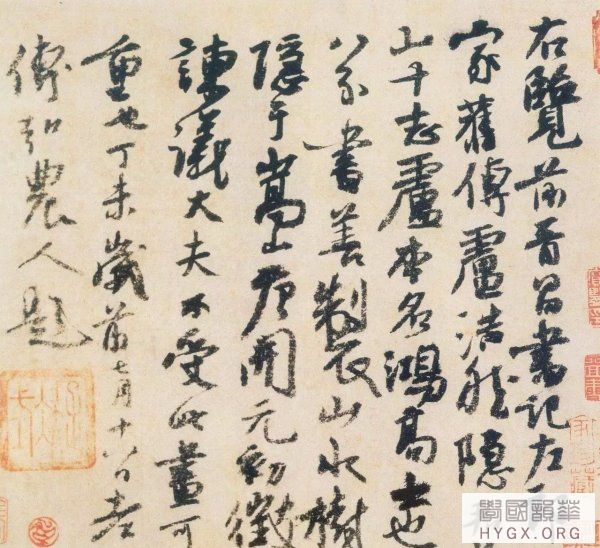 右覽前晉昌書記左
家舊傳盧浩然隱
山十志盧本名鴻高士也
八分書善製山水樹
隱于嵩山唐開元初徵
諫議大夫不受此畫可
重也丁未歲前七月十八日老
傅弘農人題
學國韻華
HYGX.ORG